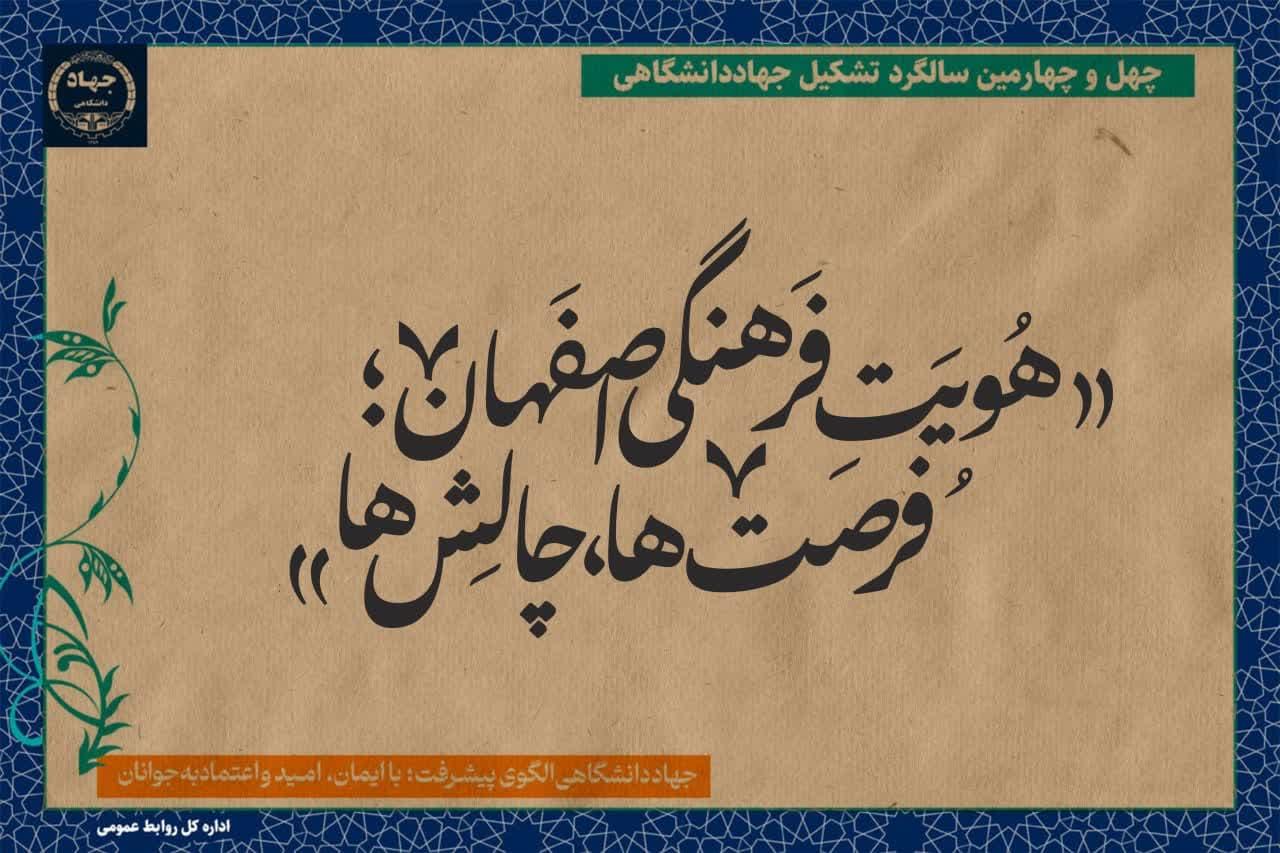 چهل و چهارمین سالگرد تشکیل جهاددانشگاهی
جهاد
دانشگاهی
«هُویَتِ فَرهنگی اصفَهان؛
فُرصَت‌ها، چالِش‌ها»
جهاددانشگاهی الگوی پیشرفت؛ با ایمان، امید و اعتماد به جوانان
اداره کل روابط عمومی